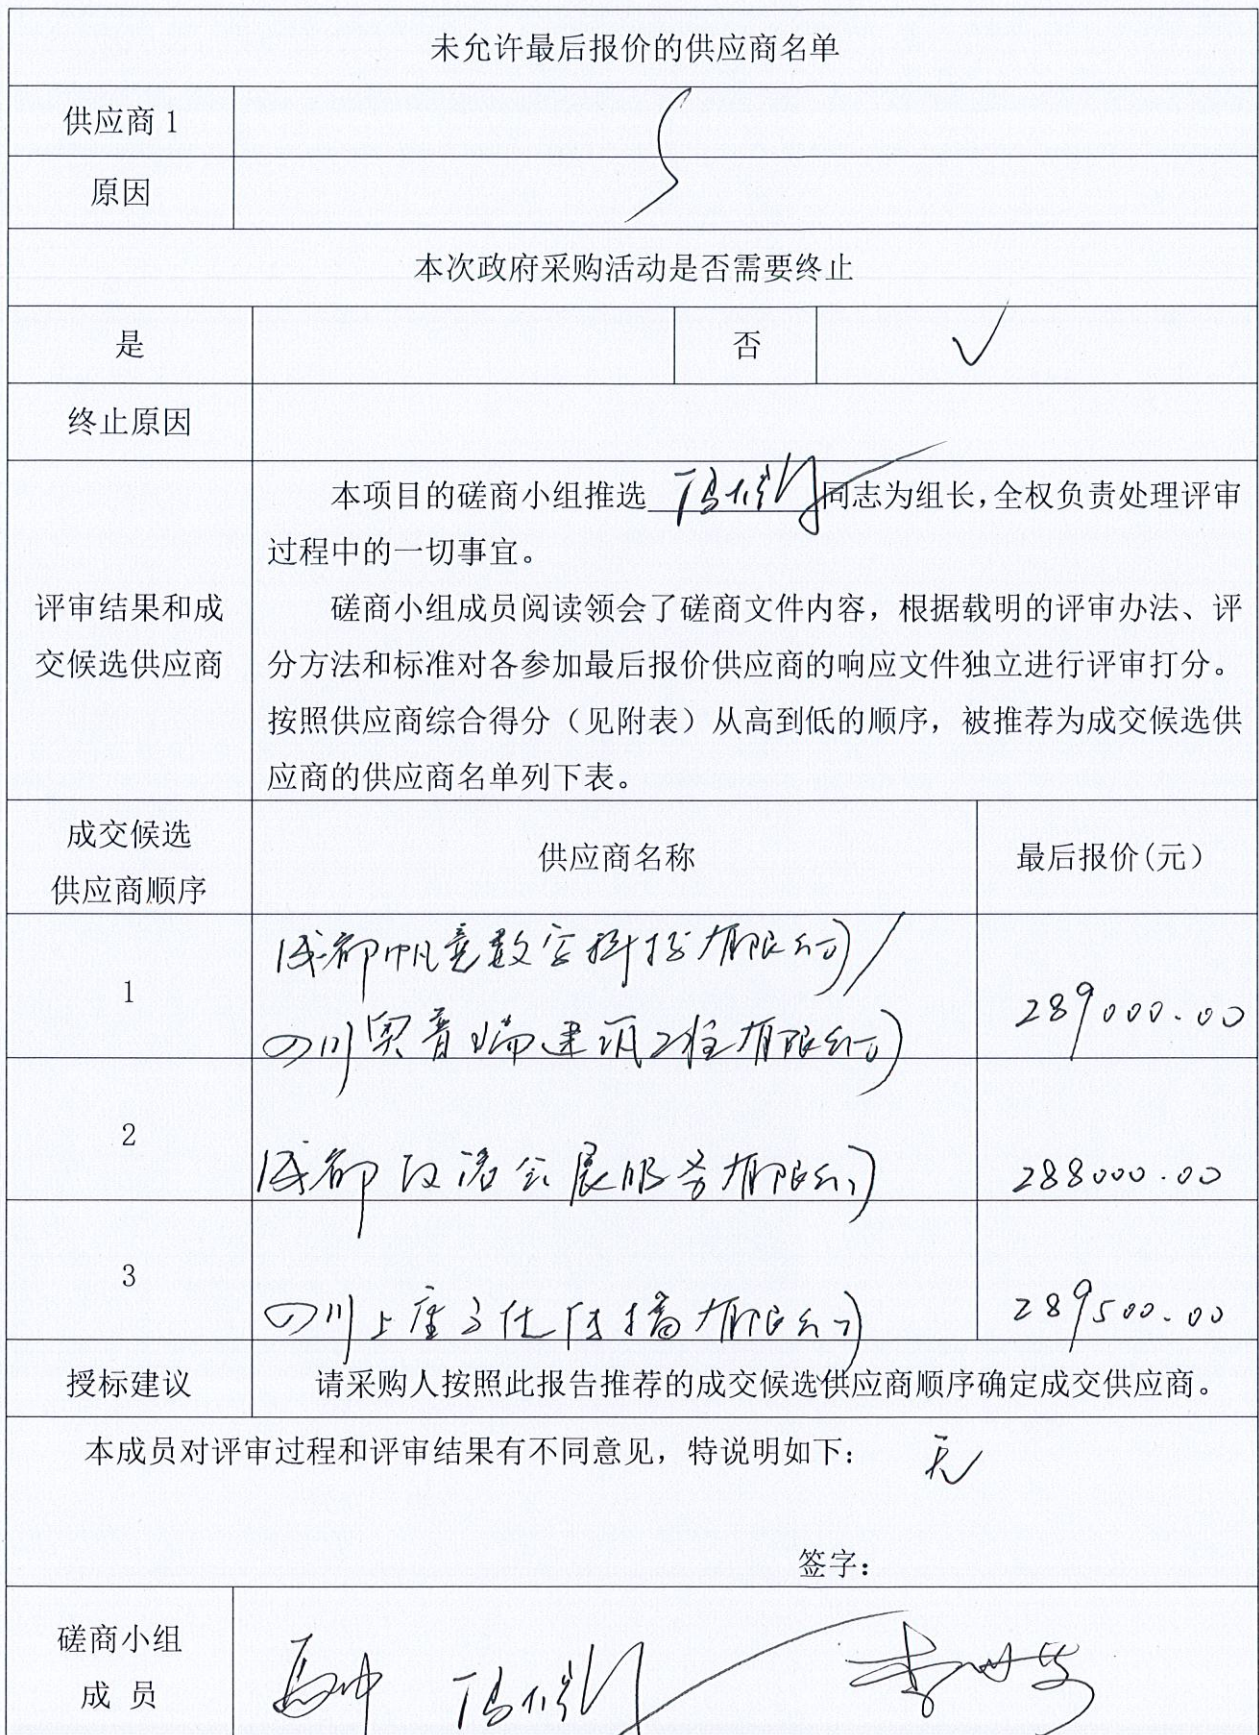 未允许最后报价的供应商名单
供应商 1
原因
本次政府采购活动是否需要终止
是 否 √
终止原因
评审结果和成
交候选供应商
本项目的磋商小组推选 同志为组长，全权负责处理评审
过程中的一切事宜。
磋商小组成员阅读领会了磋商文件内容，根据载明的评审办法、评
分方法和标准对各参加最后报价供应商的响应文件独立进行评审打分。
按照供应商综合得分（见附表）从高到低的顺序，被推荐为成交候选供
应商的供应商名单列下表。
成交候选
供应商顺序
供应商名称
最后报价(元)
1
成都帆意数字科技有限公司/
四川奥普瑞建筑工程有限公司
289000.00
2
成都 会展服务有限公司
288000.00
3
四川上座 传播有限公司
289500.00
授标建议
请采购人按照此报告推荐的成交候选供应商顺序确定成交供应商。
本成员对评审过程和评审结果有不同意见，特说明如下： 无
签字：
磋商小组
成 员